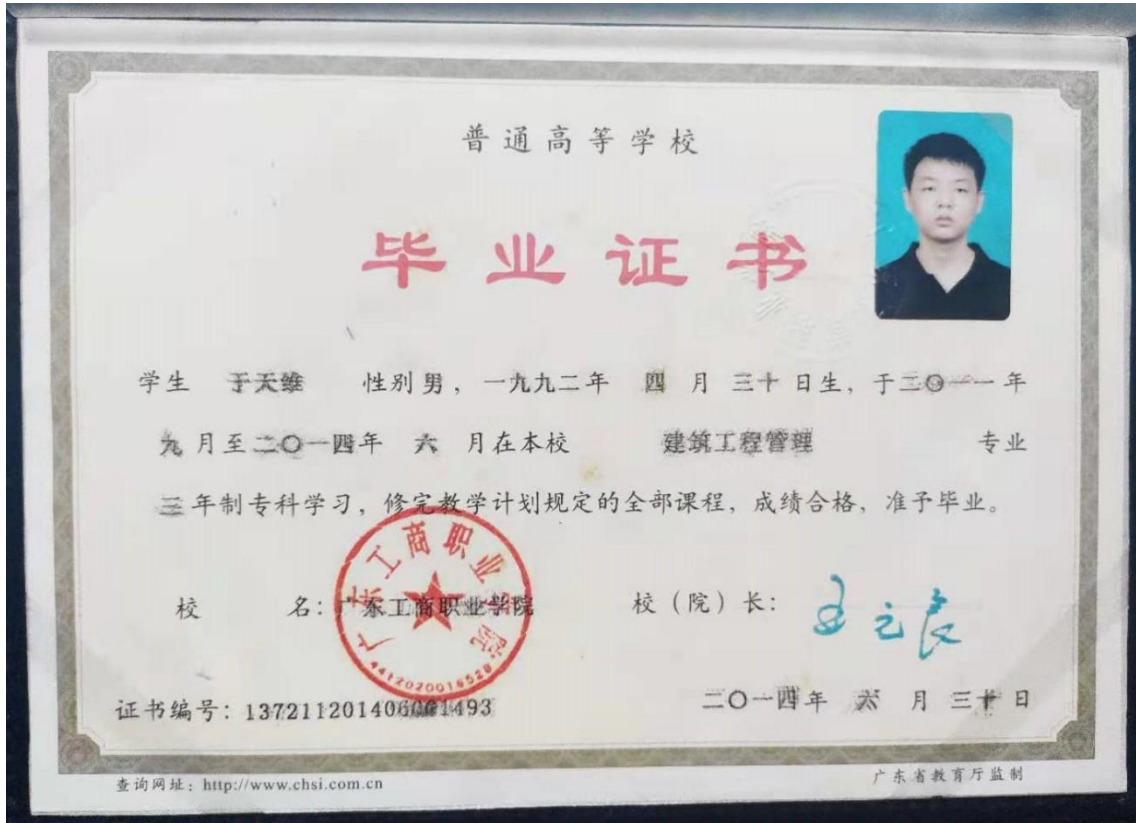 普通高等学校
毕业证书
学生 于天维 性别男，一九九二年 四 月 三十 日生，于二〇一一年
九月至二〇一四年 六 月在本校 建筑工程管理 专业
三年制专科学习，修完教学计划规定的全部课程，成绩合格，准予毕业。
校 名：广东工商职业学院 校（院）长：
广东工商职业学院
4412020016528
证书编号：137211201406001493 二〇一四年 六 月 三十 日
查询网址：http://www.chsi.com.cn 广东省教育厅监制